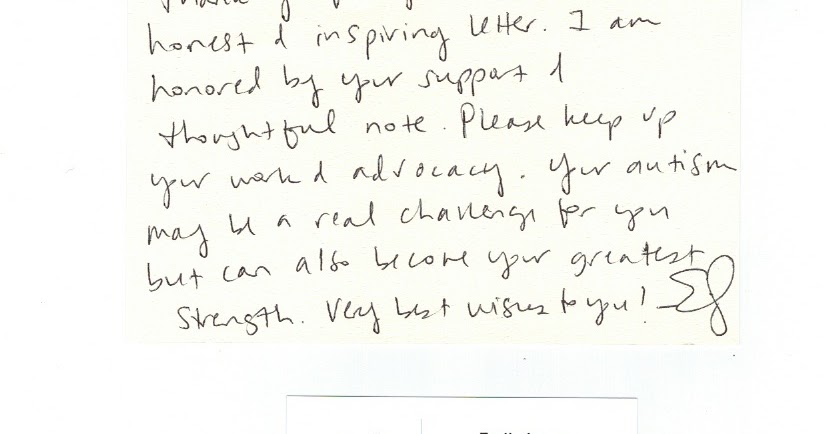 honest & inspiring letter. I am
honored by your support &
thoughtful note. Please keep up
your work & advocacy. Your autism
may be a real challenge for you
but can also become your greatest
strength. Very best wishes to you!